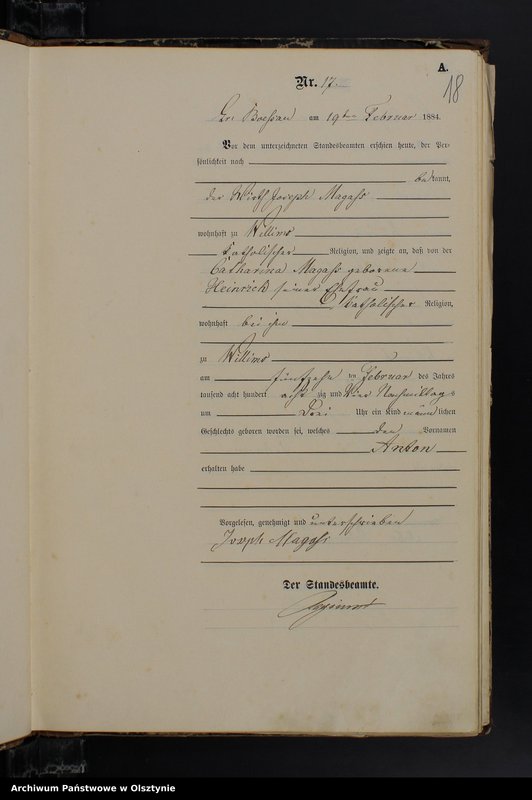 A.
18
Nr. 17.
Gr. Boessau am 19ten Februar 1884.
Vor dem unterzeichneten Standesbeamten erschien heute, der Per-
sönlichkeit nach
bekannt,
der Wirth Joseph Magass
wohnhaft zu Willims
katholischer Religion, und zeigte an, daß von der
Catharina Magass geborene
Heinrich seiner Ehefrau
katholischer Religion,
wohnhaft bei ihm
zu Willims
am fünfzehn ten Februar des Jahres
tausend acht hundert acht zig und Vier Nachmittags
um Drei Uhr ein Kind männlichen
Geschlechts geboren worden sei, welches den Vornamen
Anton
erhalten habe
Vorgelesen, genehmigt und unterschrieben
Joseph Magass
Der Standesbeamte.
Archiwum Państwowe w Olsztynie